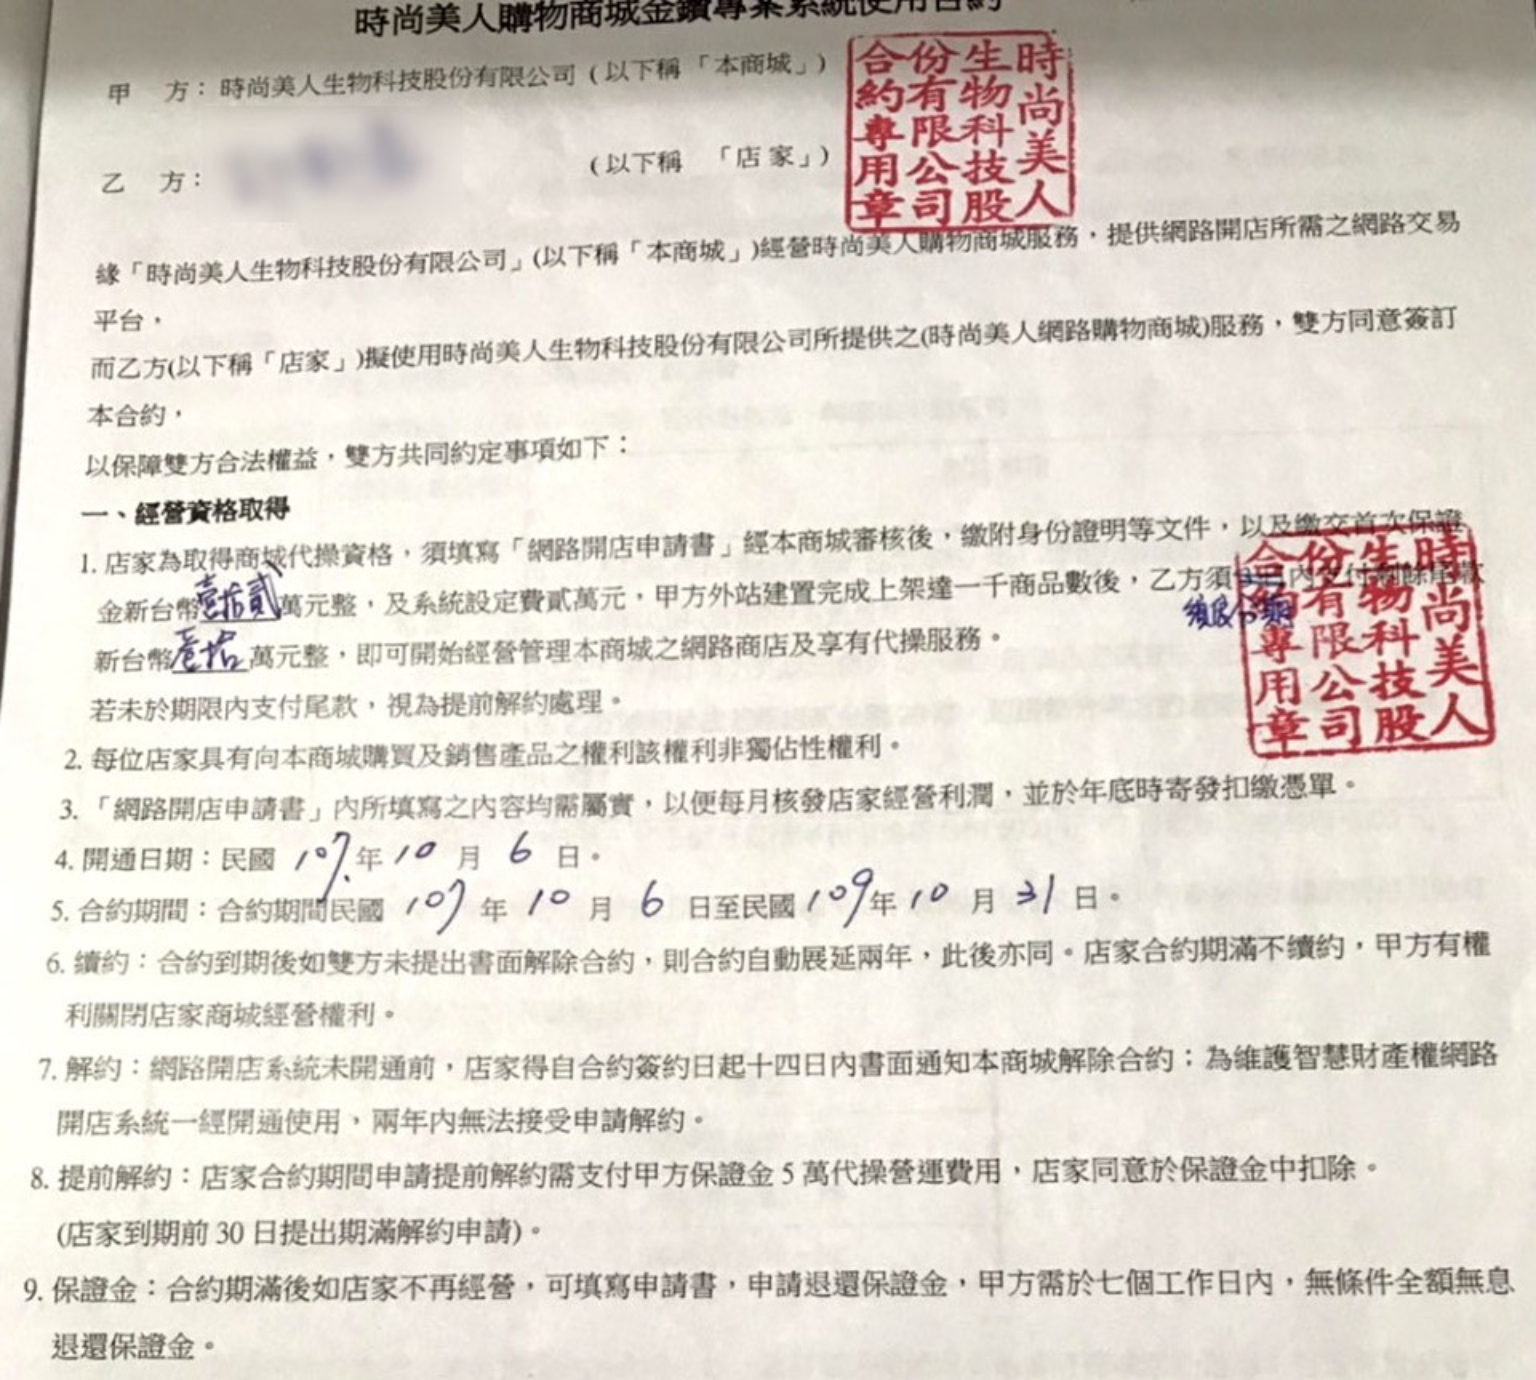 時尚美人購物商城金鑽專案系統使用合約
甲 方：時尚美人生物科技股份有限公司（以下稱「本商城」）
乙 方： （以下稱 「店家」）
時尚美人
生物科技股
份有限公司
合約專用章
緣「時尚美人生物科技股份有限公司」(以下稱「本商城」)經營時尚美人購物商城服務，提供網路開店所需之網路交易
平台，
而乙方(以下稱「店家」)擬使用時尚美人生物科技股份有限公司所提供之(時尚美人網路購物商城)服務，雙方同意簽訂
本合約，
以保障雙方合法權益，雙方共同約定事項如下：
一、經營資格取得
1. 店家為取得商城代操資格，須填寫「網路開店申請書」經本商城審核後，繳附身份證明等文件，以及繳交首次保證
金新台幣壹拾貳萬元整，及系統設定費貳萬元，甲方外站建置完成上架達一千商品數後，乙方須 內支付剩餘尾款
新台幣壹拾萬元整，即可開始經營管理本商城之網路商店及享有代操服務。
若未於期限內支付尾款，視為提前解約處理。
時尚美人
生物科技股
份有限公司
合約專用章
2. 每位店家具有向本商城購買及銷售產品之權利該權利非獨佔性權利。
3. 「網路開店申請書」內所填寫之內容均需屬實，以便每月核發店家經營利潤，並於年底時寄發扣繳憑單。
4. 開通日期：民國 107 年 10 月 6 日。
5. 合約期間：合約期間民國 107 年 10 月 6 日至民國 109 年 10 月 31 日。
6. 續約：合約到期後如雙方未提出書面解除合約，則合約自動展延兩年，此後亦同。店家合約期滿不續約，甲方有權
利關閉店家商城經營權利。
7. 解約：網路開店系統未開通前，店家得自合約簽約日起十四日內書面通知本商城解除合約；為維護智慧財產權網路
開店系統一經開通使用，兩年內無法接受申請解約。
8. 提前解約：店家合約期間申請提前解約需支付甲方保證金 5 萬代操營運費用，店家同意於保證金中扣除。
(店家到期前 30 日提出期滿解約申請)。
9. 保證金：合約期滿後如店家不再經營，可填寫申請書，申請退還保證金，甲方需於七個工作日內，無條件全額無息
退還保證金。